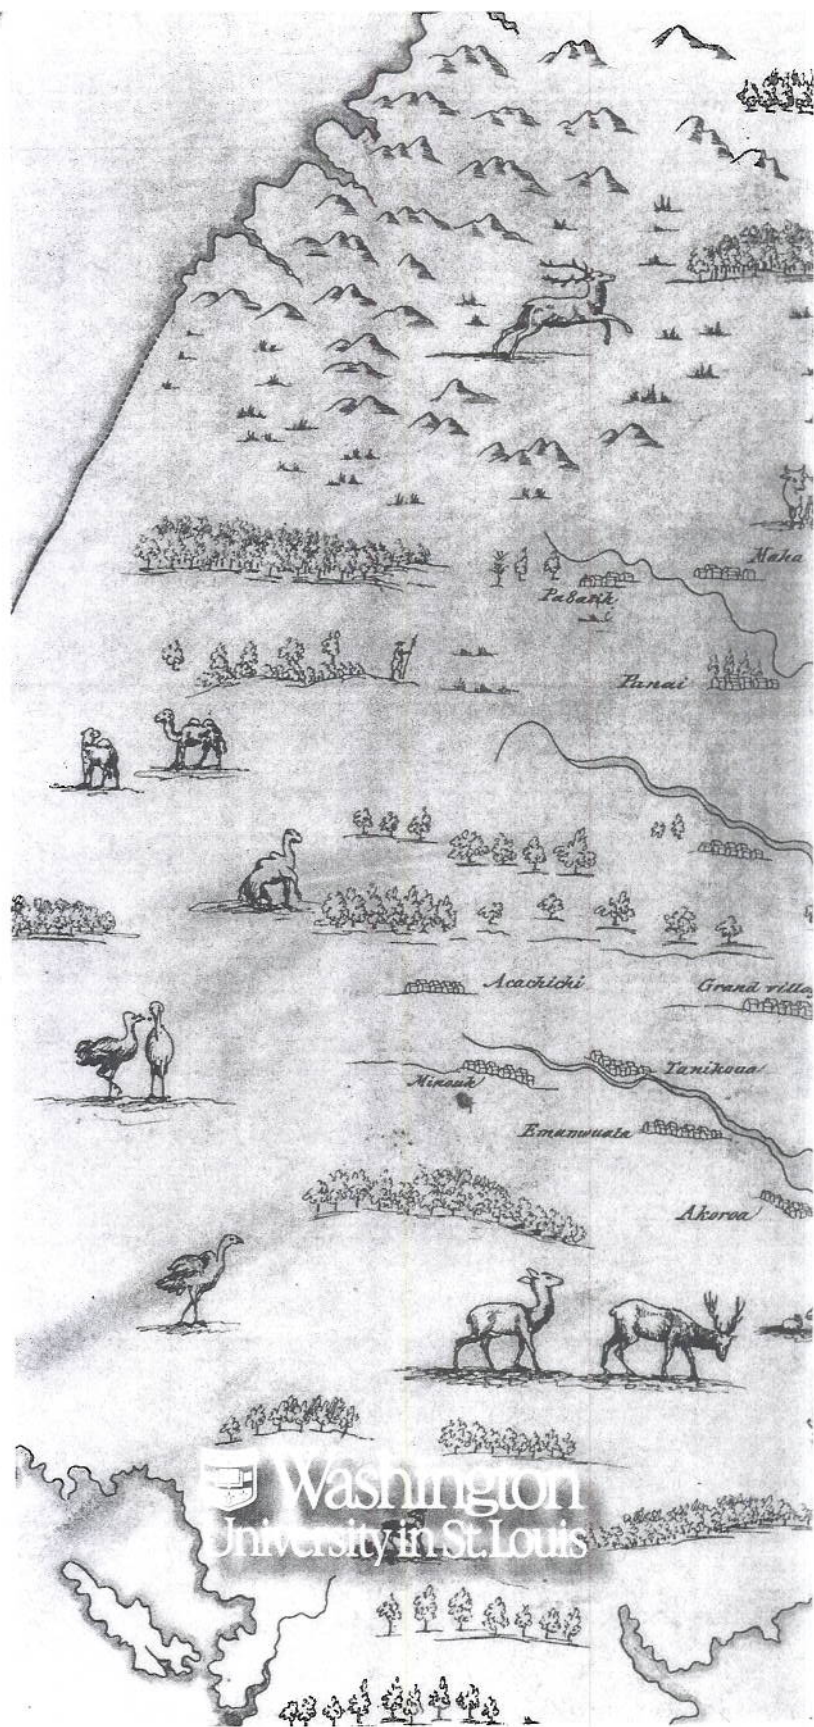 Maha
Pa8atik
Panai
Acachichi
Grand villa
Tanikoua
Minouk
Emamouata
Akoroa
Washington
University in St. Louis